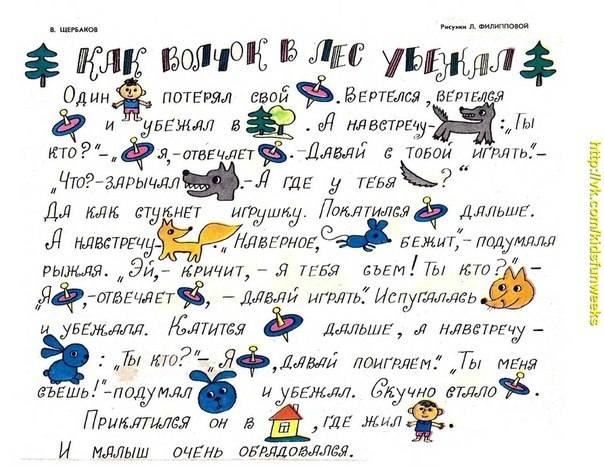 В. ЩЕРБАКОВ
Рисунки Л. ФИЛИППОВОЙ
КАК ВОЛЧОК В ЛЕС УБЕЖАЛ
Один потерял свой . Вертелся, вертелся
и убежал в . А навстречу- : „Ты
кто?"-„ я,-отвечает .-Давай с тобой играть."-
„Что?-зарычал .-А где у тебя ?"
Да как стукнет игрушку. Покатился дальше.
А навстречу- . „Наверное, бежит",-подумала
рыжая. „Эй,- кричит, - я тебя съем! Ты кто?"-
„Я ,-отвечает , - давай играть." Испугалась
и убежала. Катится дальше, а навстречу -
: „Ты кто?"-„Я , давай поиграем." „Ты меня
съешь!"-подумал и убежал. Скучно стало .
Прикатился он в , где жил .
И малыш очень обрадовался.
http://vk.com/kidsfunweeks